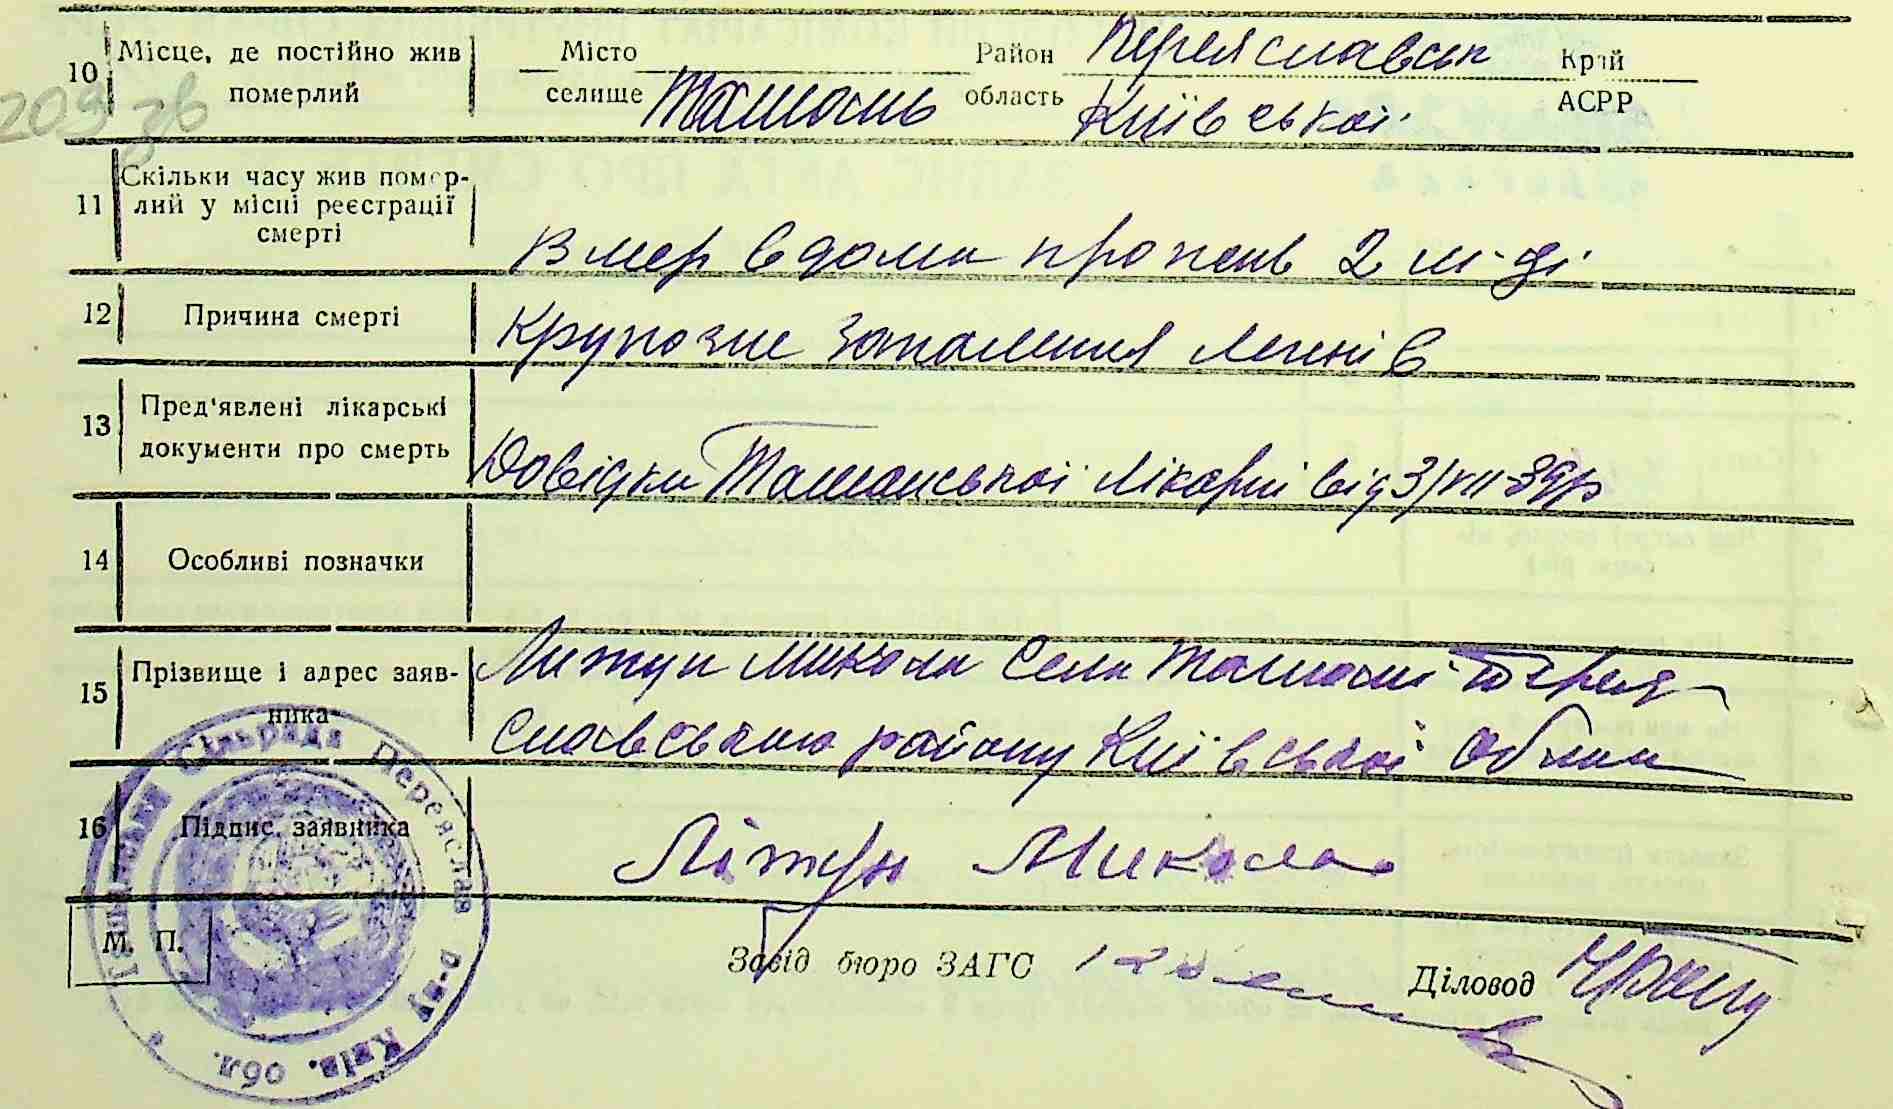 10 Місце, де постійно жив Місто Район Переяславськ Край
померлий селище Ташань область Київської АСРР
209 зв
11 Скільки часу жив помер-
лий у місці реєстрації
смерті
вмер вдома прожив 2 м-ці
12 Причина смерті Крупозне запалення легенів
13 Пред'явлені лікарські
документи про смерть Довідка Ташанської лікарні від 3/VII-39р
14 Особливі позначки
15 Прізвище і адрес заяв- Лижун Микола Села Ташані Перея-
ника славського району Київської Області
16 Підпис. заявника Ліжун Микола
М. П. Завід бюро ЗАГС Діловод
Ташанська Сільрада Переяслав р-ну Київ. обл.